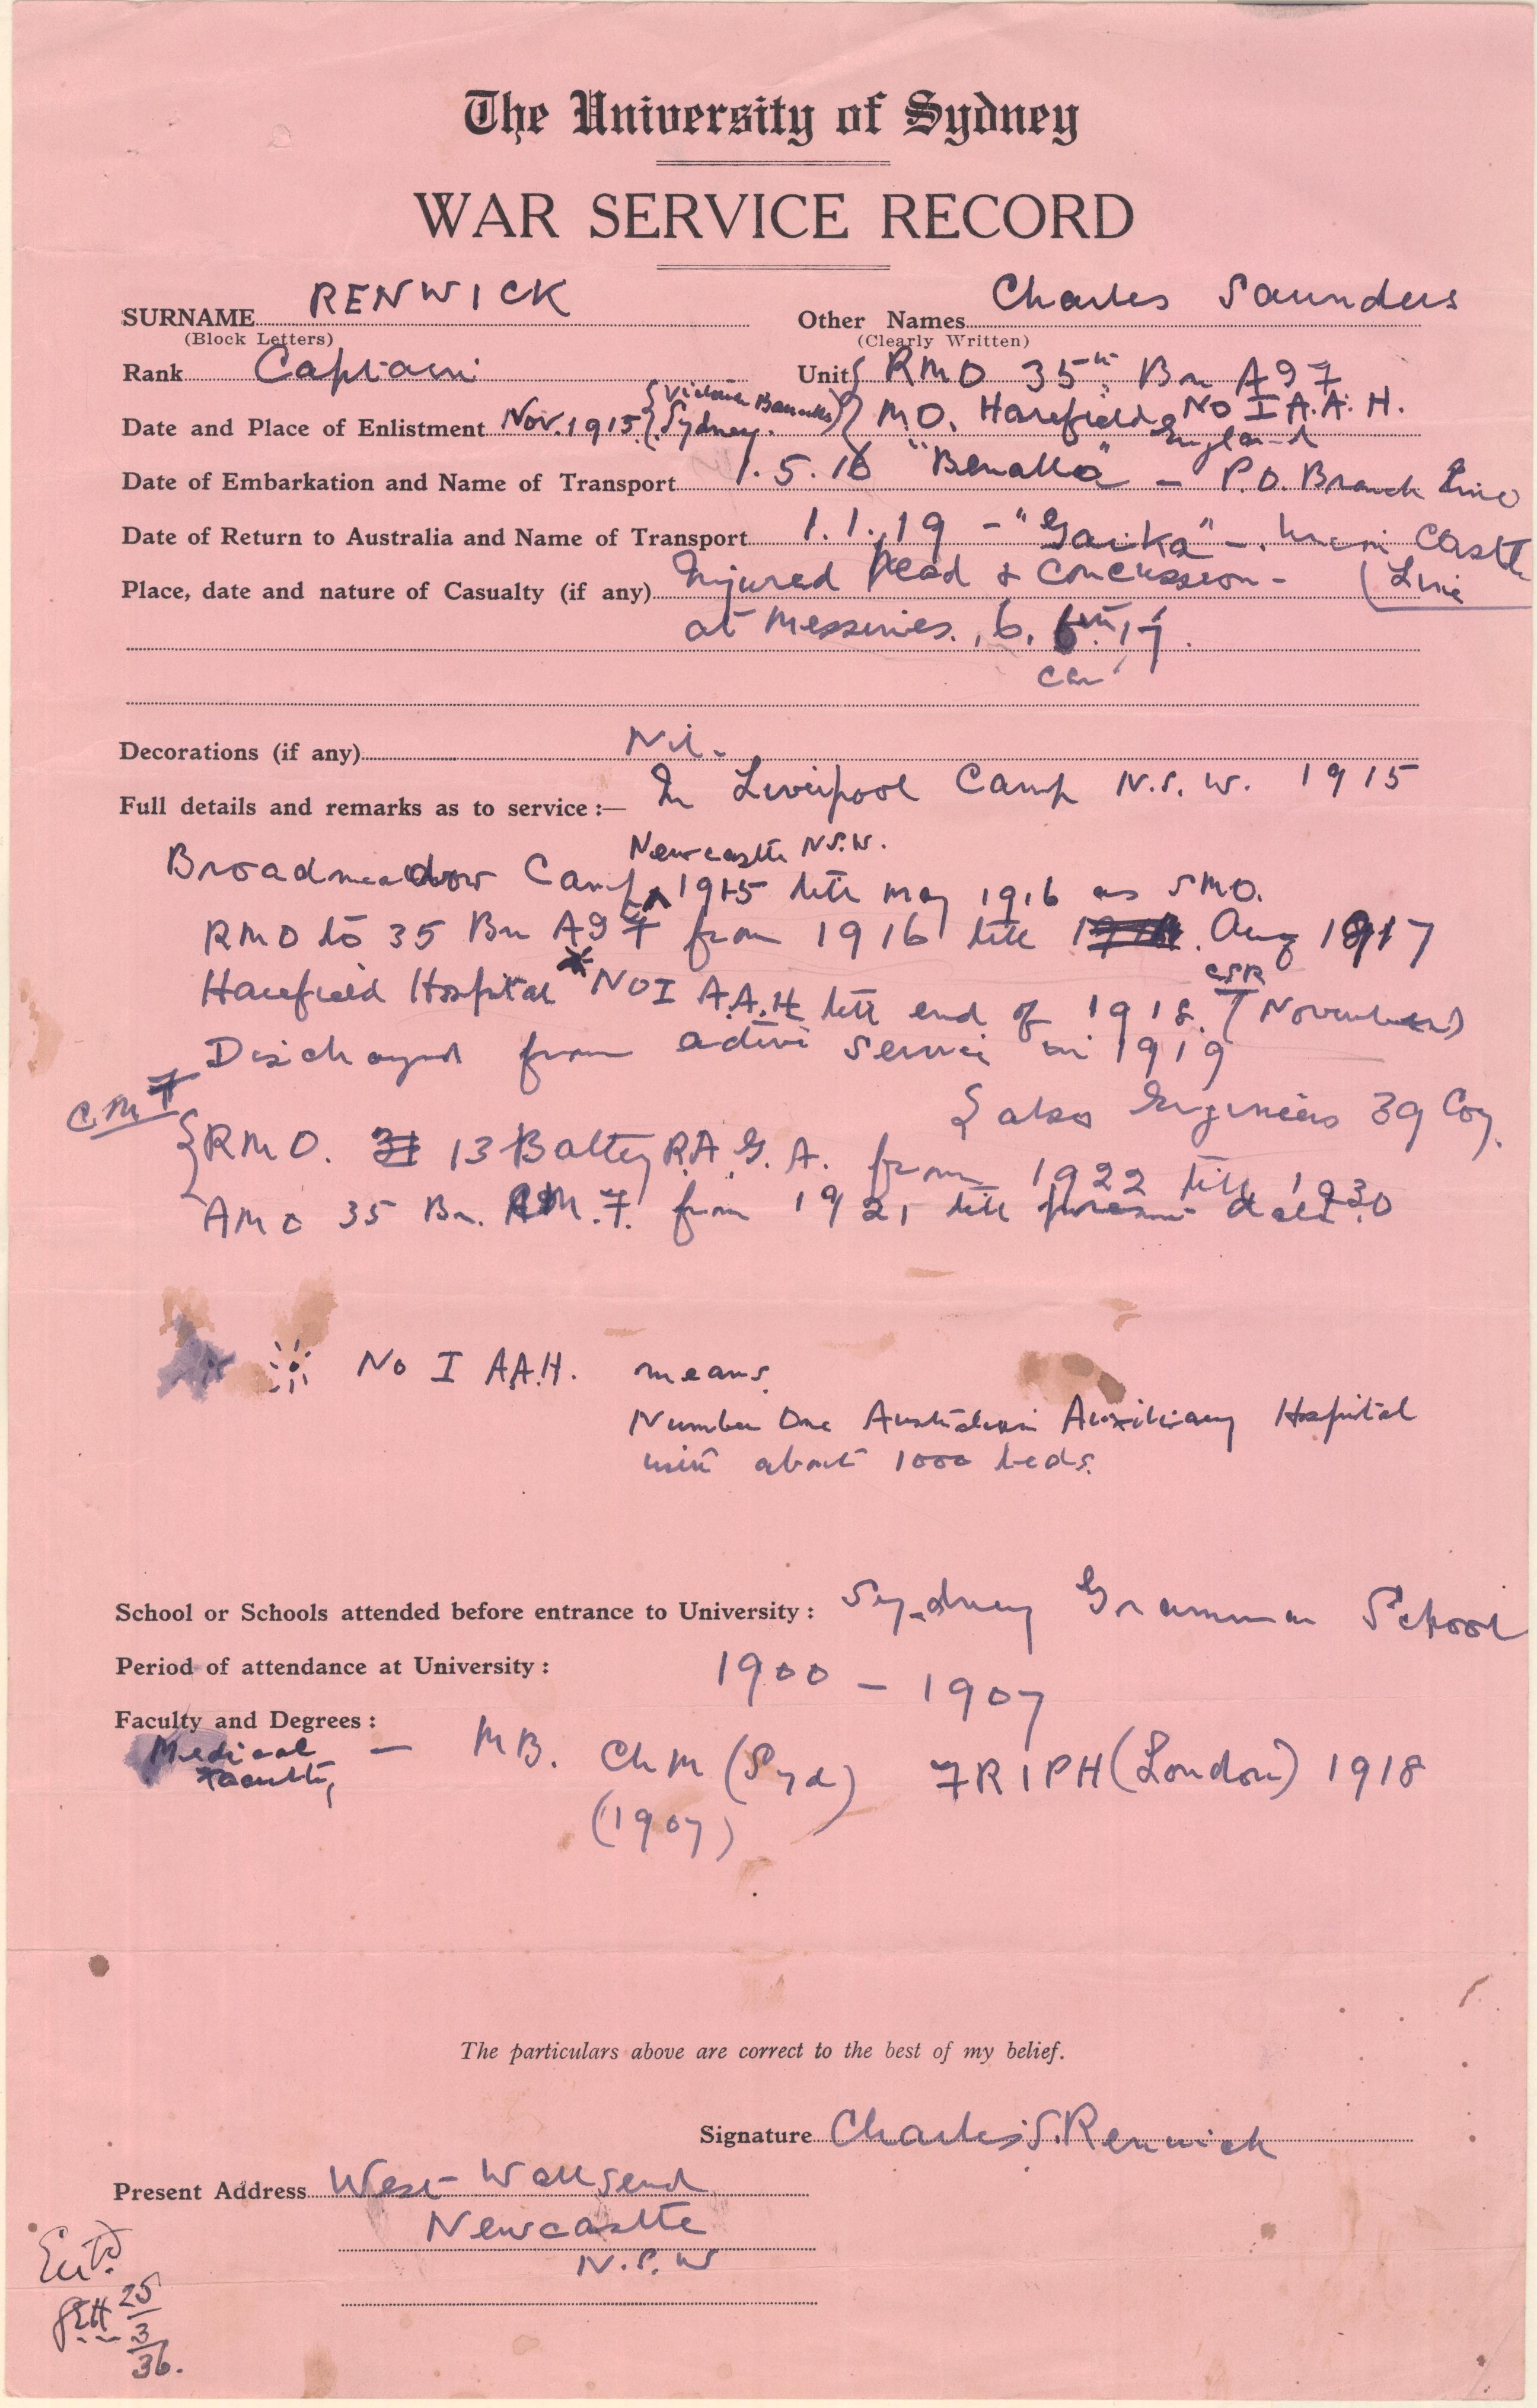 The University of Sydney
WAR SERVICE RECORD
SURNAME RENWICK Other Names Charles Saunders
(Block Letters) (Clearly Written)
Rank Captain Unit { RMO 35th Bn AIF
Date and Place of Enlistment Nov. 1915 { Victoria Barracks Sydney. } { M.O. Harefield No I A.A.H. England
Date of Embarkation and Name of Transport 1.5.16 "Benalla" - P.O. Branch Line
Date of Return to Australia and Name of Transport 1.1.19 - "Gaika" - Union Castle Line
Place, date and nature of Casualty (if any) Injured Head & Concussion -
at Messines., 6. 17.
Decorations (if any) Nil.
Full details and remarks as to service :— In Liverpool Camp N.S.W. 1915
Newcastle N.S.W.
Broadmeadow Camp ^ 1915 till May 1916 as SMO.
RMO to 35 Bn AIF from 1916 till Aug 1917
Harefield Hospital * No I A.A.H. till end of 1918. (November)
CSR
Discharged from active service in 1919
{ also Engineers 39 Coy.
C.M.F
{ RMO. 13 Battery R.A.G.A. from 1922 till 1930
AMO 35 Bn. C.M.F. from 1921 till present date.
No I A.A.H. means
Number One Australian Auxiliary Hospital
with about 1000 beds.
School or Schools attended before entrance to University : Sydney Grammar School
Period of attendance at University : 1900 - 1907
Faculty and Degrees :
Medical Faculty - MB. ChM (Syd) FRIPH (London) 1918
(1907)
The particulars above are correct to the best of my belief.
Signature Charles S. Renwick
Present Address West Wallsend
Newcastle
N.S.W
Entd.
25
3
36.